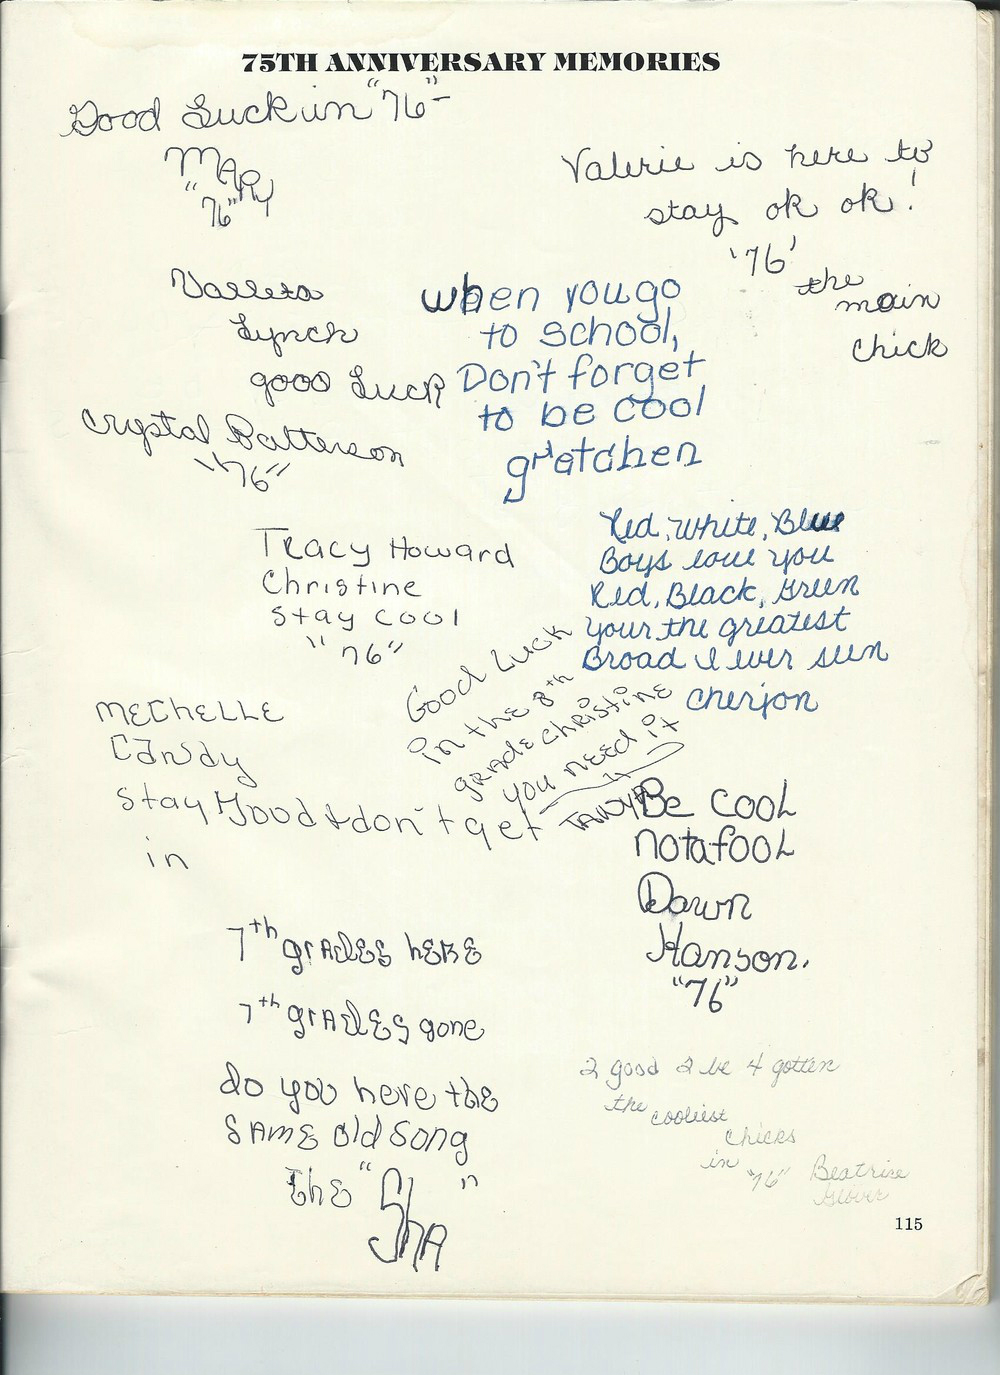 75TH ANNIVERSARY MEMORIES
Good Luck in "76"-
MARY
"76"
Valerie is here to
stay ok ok!
'76'
the
main
chick
Valleta
Lynch
good Luck
Crystal Batterson
"76"
when you go
to school,
Don't forget
to be cool
gretchen
Tracy Howard
Christine
Stay Cool
"76"
Red, White, Blue
Boys love you
Red, Black, Green
Your the greatest
Broad I ever seen
cherjon
Good Luck
in the 8th
grade Christine
you need it
TANYA
MEChELLE
Candy
Stay Good & don't get
in
Be cool
not a fool
Dawn
Hanson.
"76"
7th grades here
7th grades gone
do you here the
same old song
the "Sha"
2 good 2 be 4 gotten
the
cooliest
chicks
in
"76"
Beatrice
Glover
115